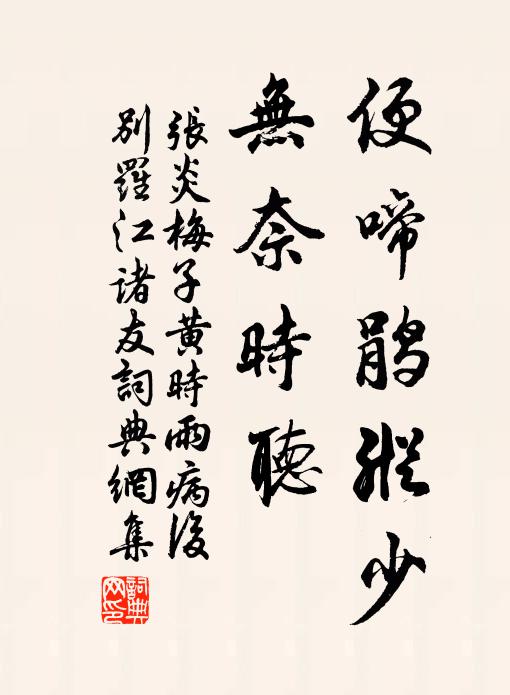 便啼鵑縱少
無奈時聽
張炎梅子黃時雨病後
別羅江諸友詞典網集
詞典網印